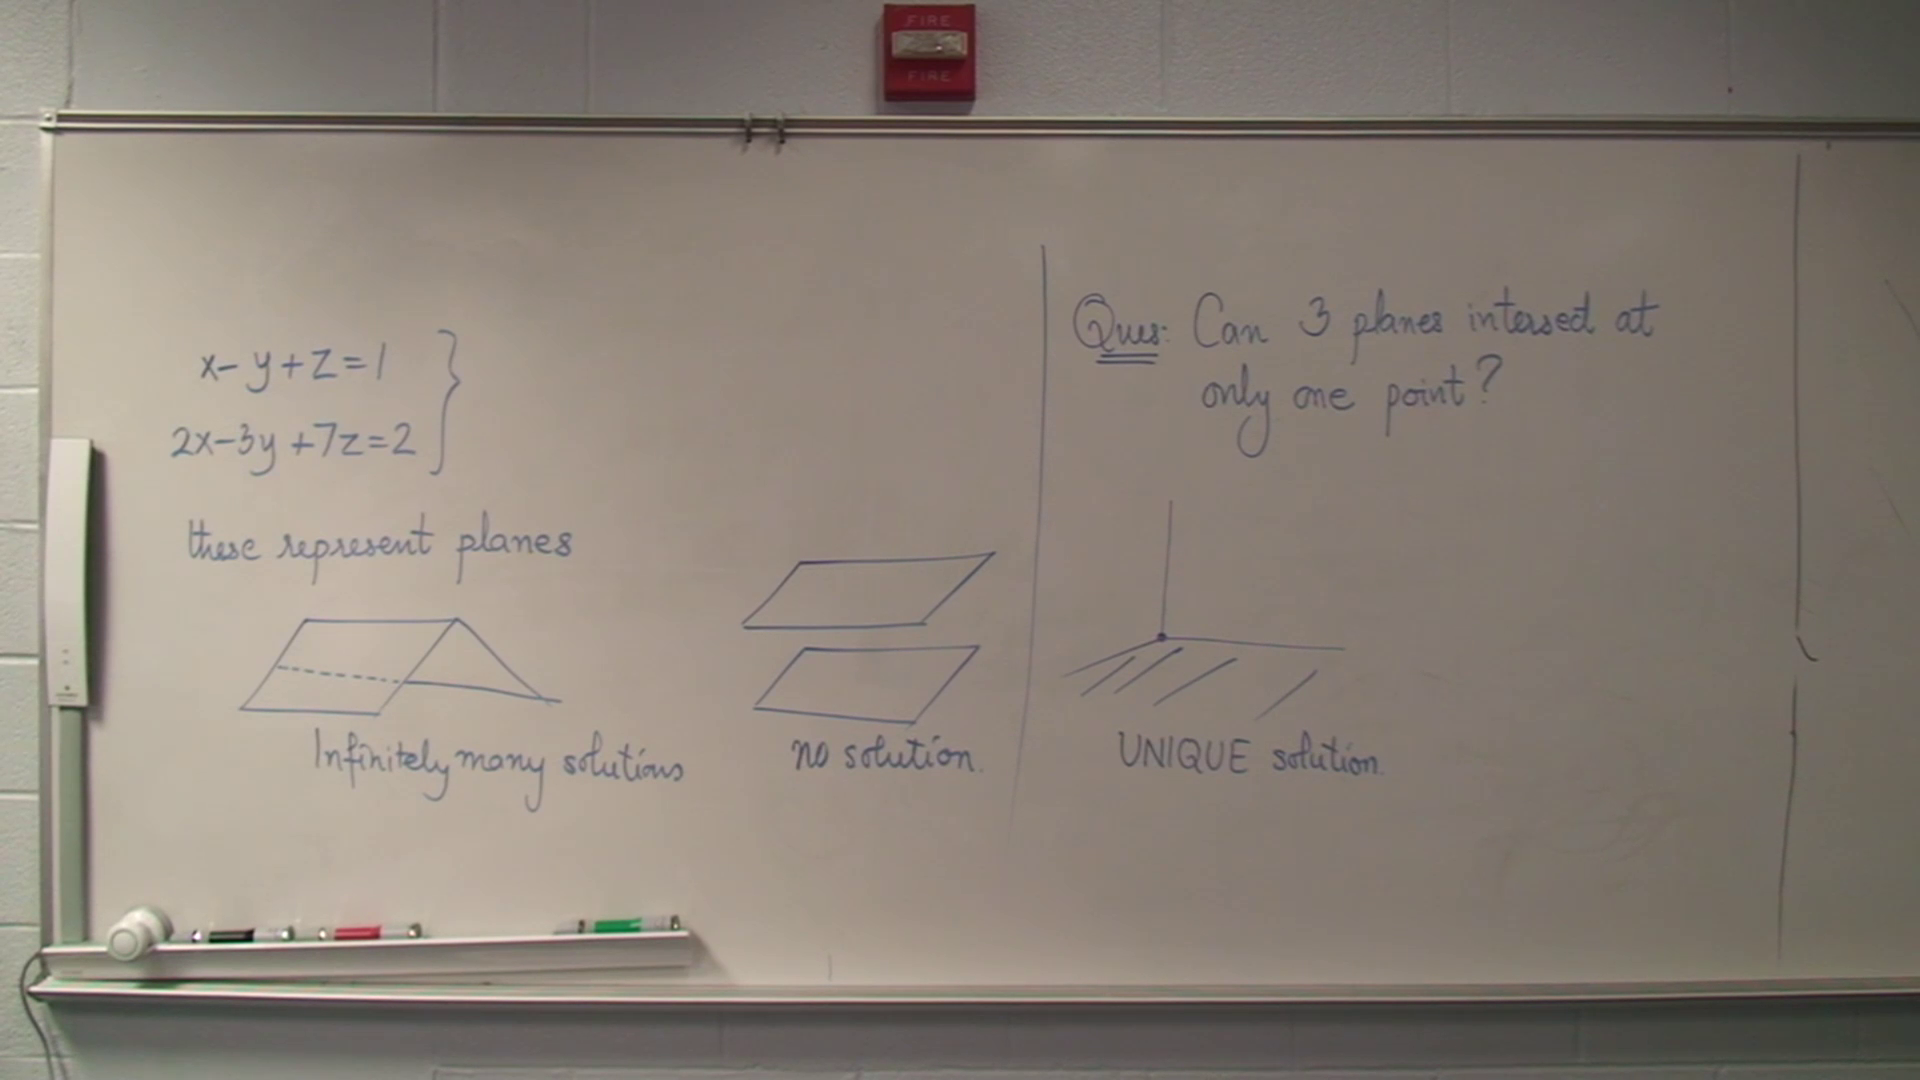 FIRE
FIRE
x-y+z=1
2x-3y+7z=2
these represent planes
Infinitely many solutions
no solution.
Ques: Can 3 planes intersect at
only one point?
UNIQUE solution.